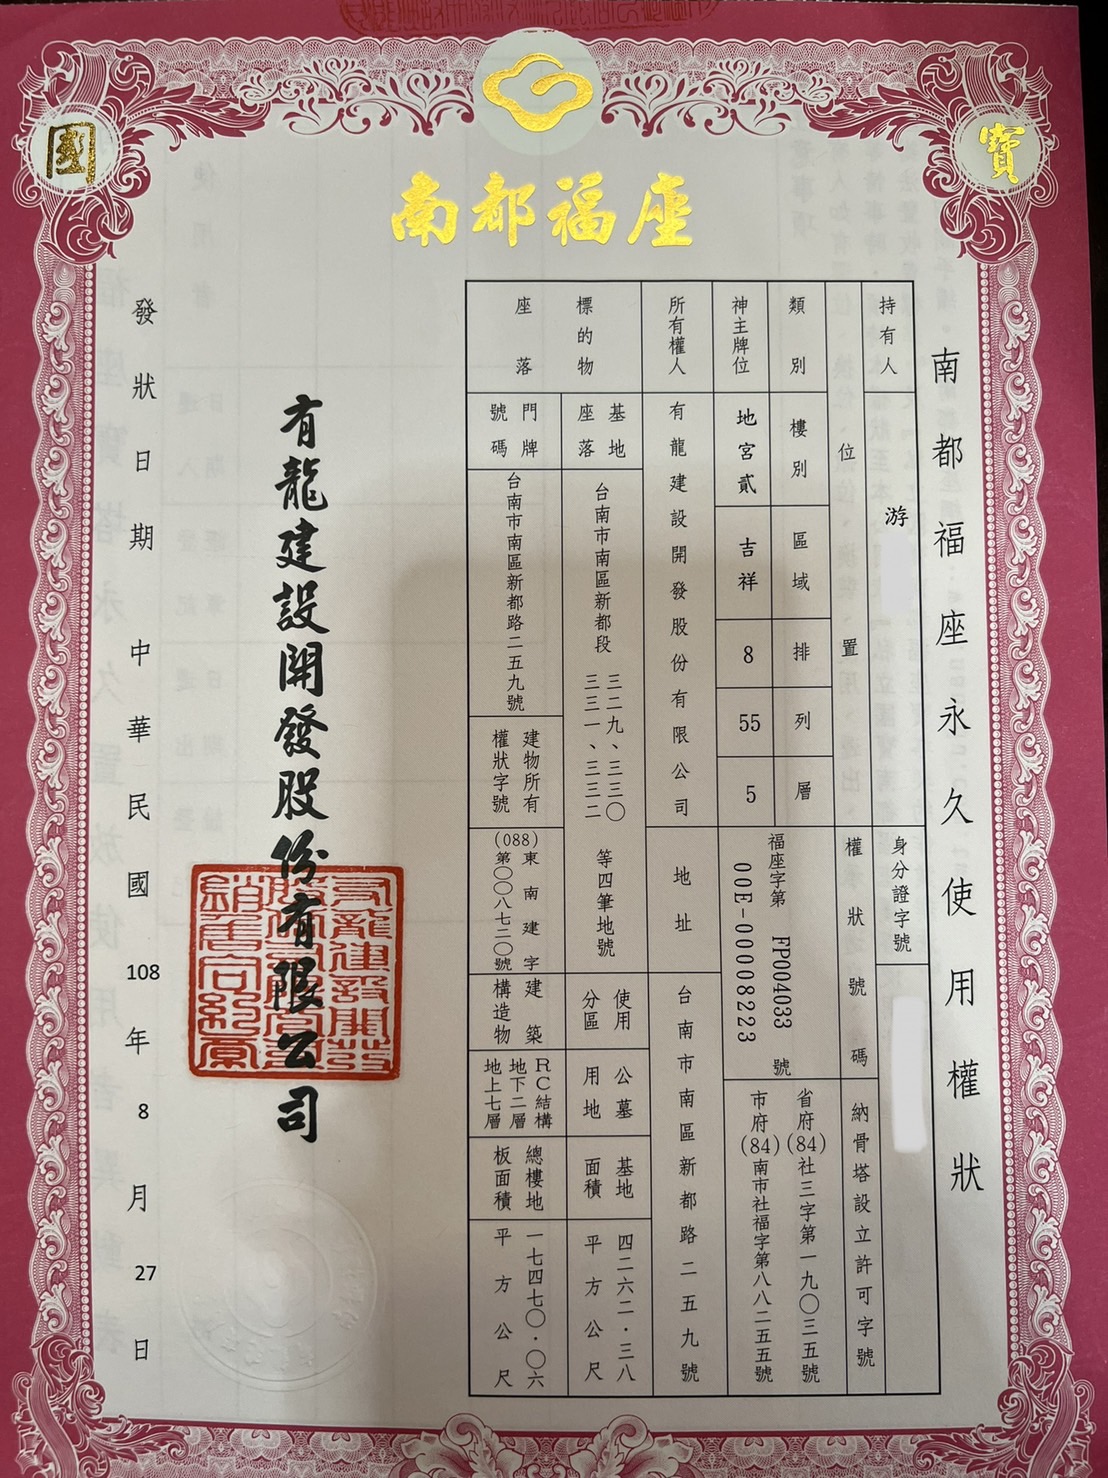 國
寶
南都福座
南都福座永久使用權狀
持有人
游
身分證字號
位置
權狀號碼
納骨塔設立許可字號
類別
樓別
區域
排
列
層
福座字第 FP004033 號
00E-00008223
省府(84)社三字第一九〇三五號
市府(84)南市社福字第八八二五五號
神主牌位
地宮貳
吉祥
8
55
5
所有權人
有龍建設開發股份有限公司
地址
台南市南區新都路二五九號
標的物
座落
基地
座落
台南市南區新都段
三二九、三三〇
三三一、三三二
等四筆地號
使用
分區
公墓
用地
基地
面積
四二六二．三八
平方公尺
門牌
號碼
台南市南區新都路二五九號
建物所有
權狀字號
(088)東南建字
第〇〇八七二〇號
建築
構造物
RC結構
地下二層
地上七層
總樓地
板面積
一七四七〇．〇六
平方公尺
有龍建設開發股份有限公司
發狀日期 中華民國 108 年 8 月 27 日